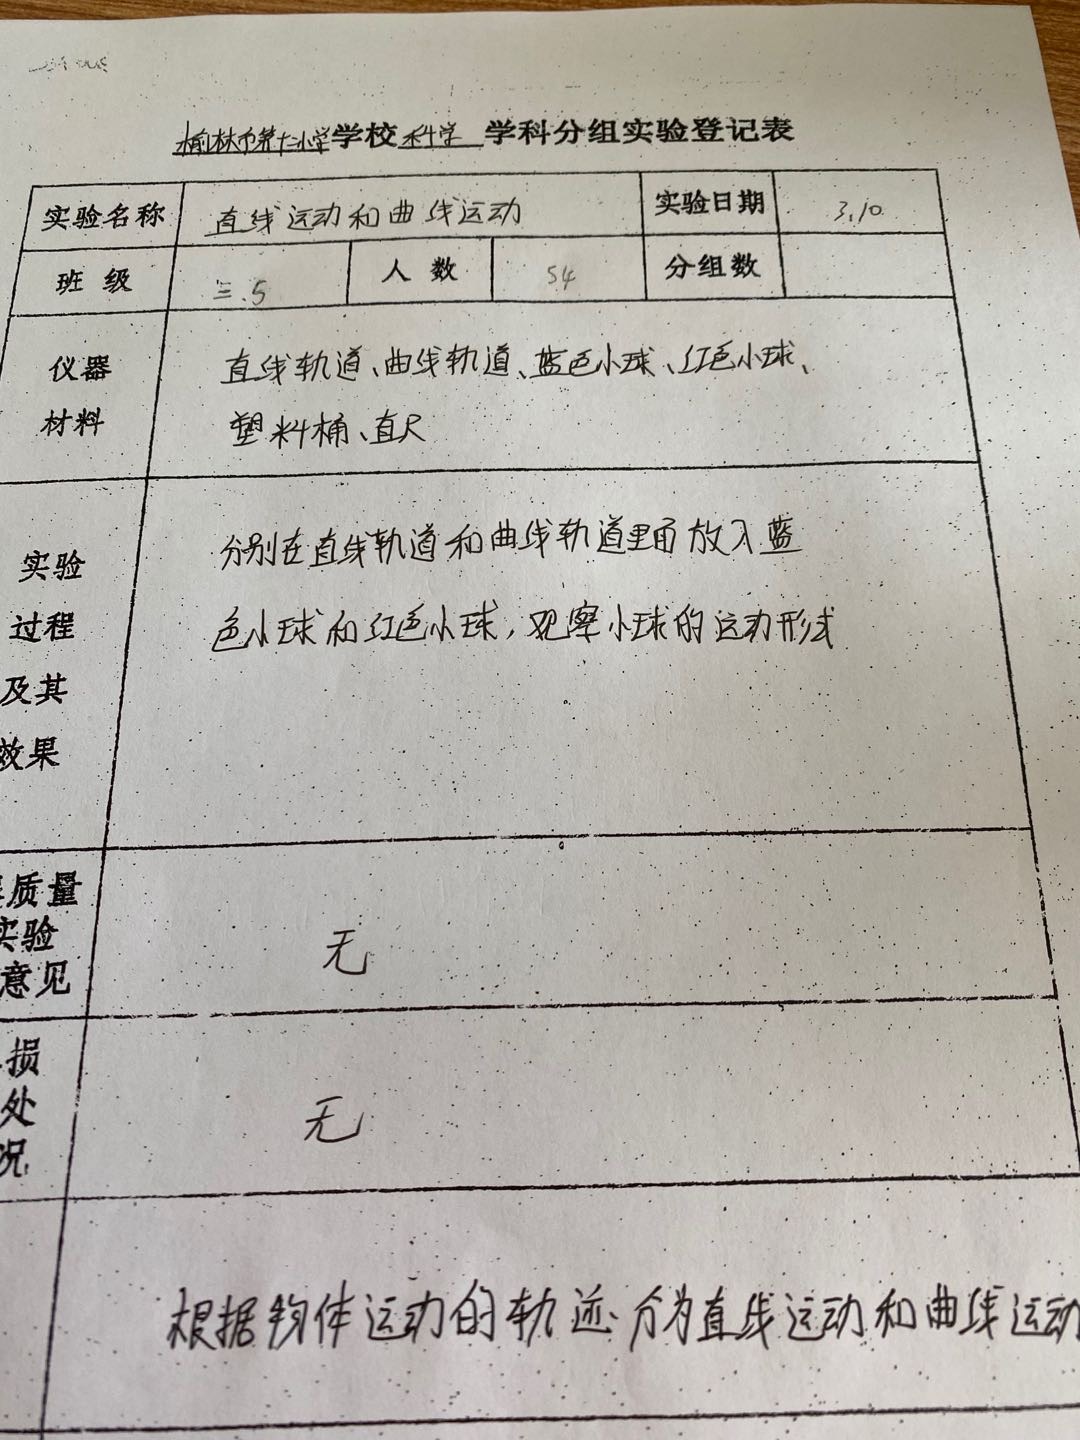 榆林市第十二小学学校科学 学科分组实验登记表
实验名称 直线运动和曲线运动 实验日期 3.10
班级 三.5 人数 54 分组数
仪器 直线轨道、曲线轨道、蓝色小球、红色小球、
材料 塑料桶、直尺
分别在直线轨道和曲线轨道里面放入蓝
实验
过程 色小球和红色小球,观察小球的运动形式
及其
效果
质量
实验 无
意见
损
处 无
况
根据物体运动的轨迹.分为直线运动和曲线运动